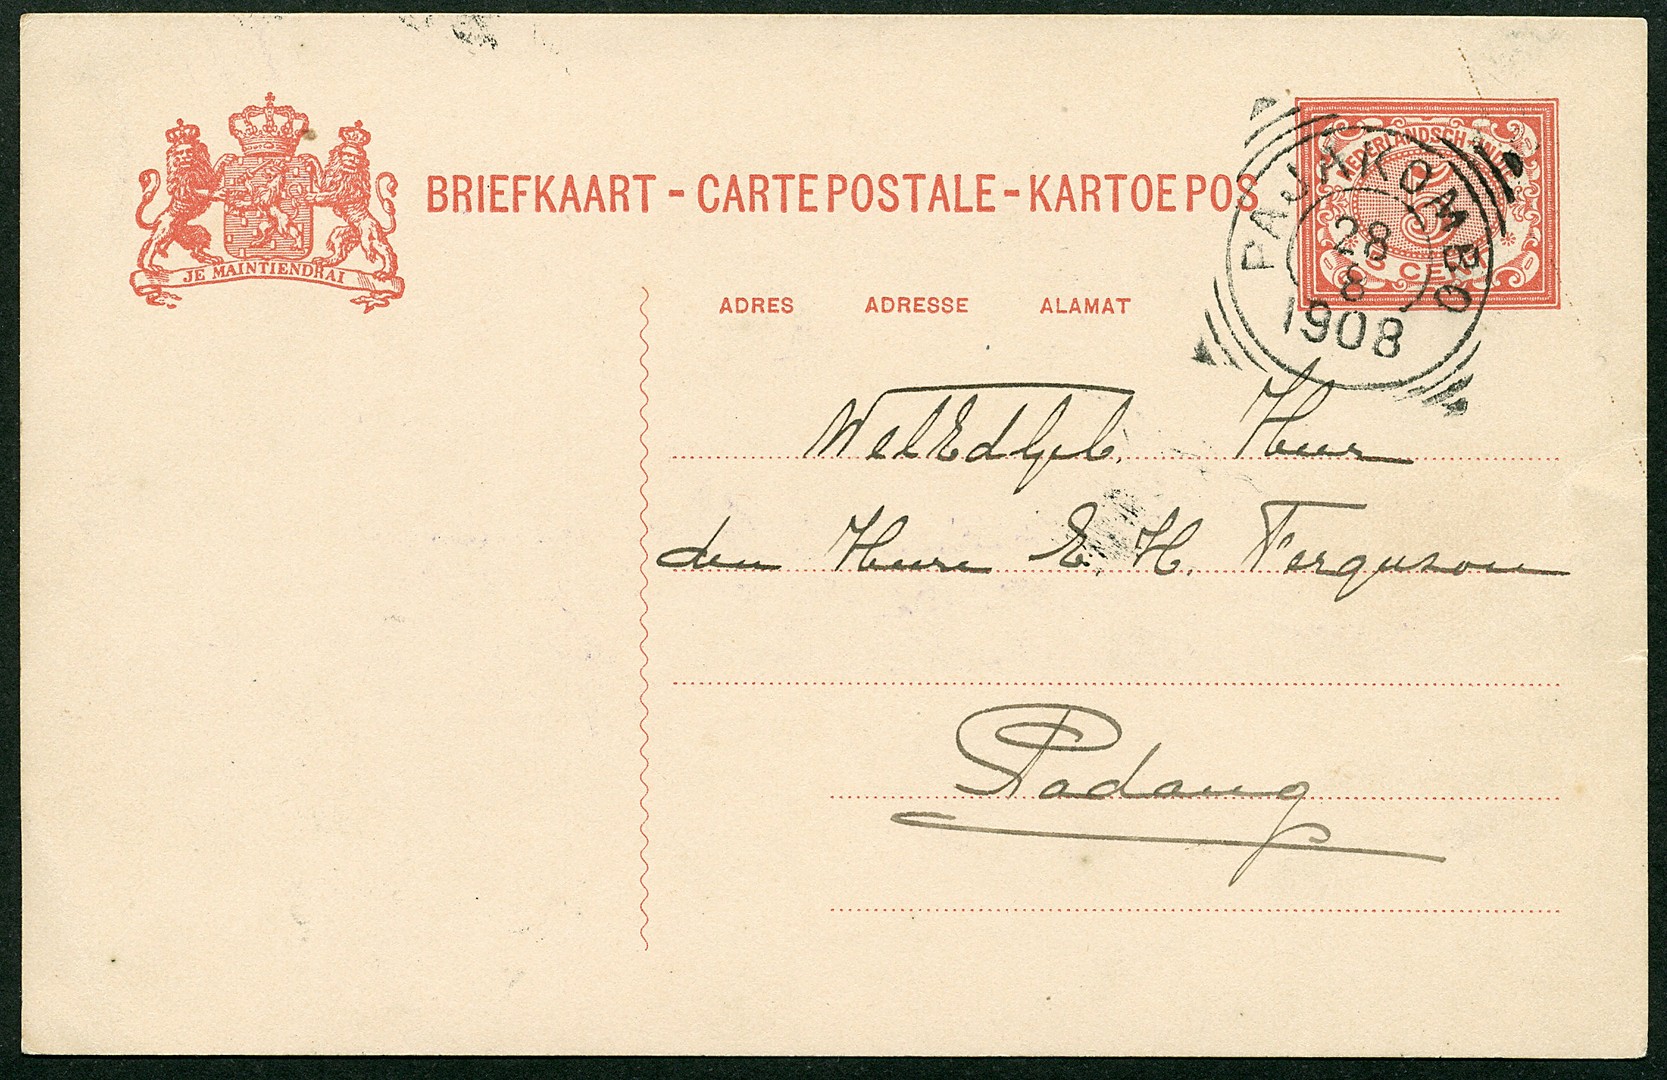 JE MAINTIENDRAI
BRIEFKAART - CARTE POSTALE - KARTOE POS
NEDERLANDSCH-INDIË
5
5 CENT
PAJAKOMBO
28
8
1908
ADRES ADRESSE ALAMAT
WelEdlgeb. Heer
den Heere E. H. Ferguson
Padang